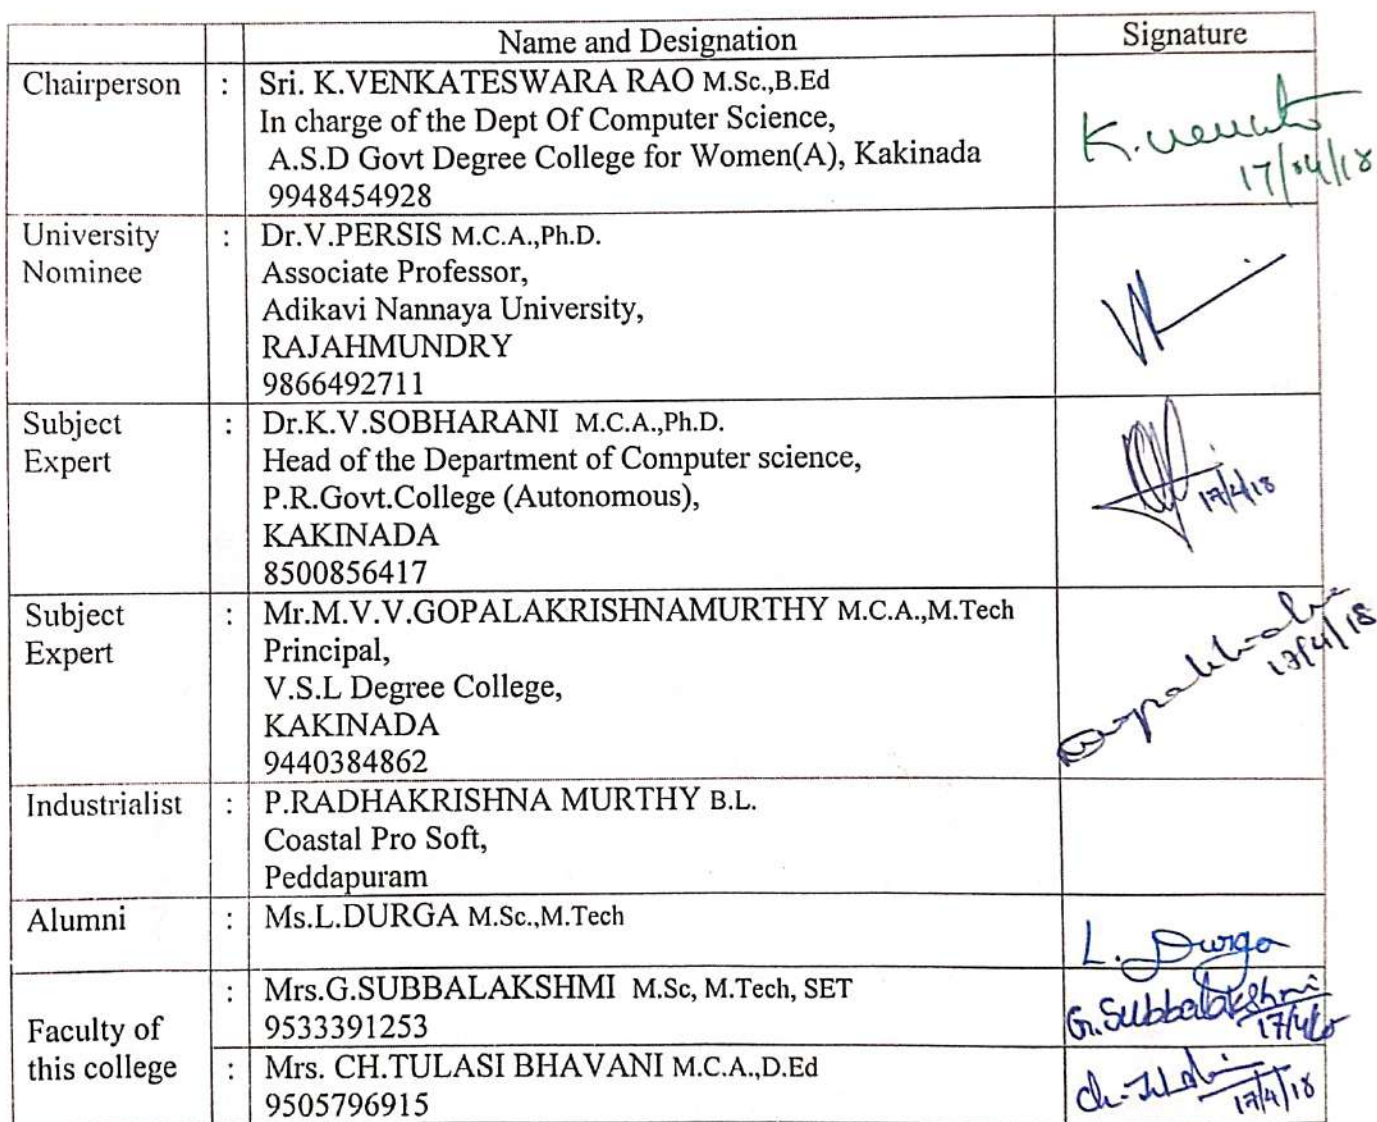 Name and Designation Signature
Chairperson : Sri. K.VENKATESWARA RAO M.Sc.,B.Ed
In charge of the Dept Of Computer Science,
A.S.D Govt Degree College for Women(A), Kakinada
9948454928
17/04/18
University : Dr.V.PERSIS M.C.A.,Ph.D.
Nominee Associate Professor,
Adikavi Nannaya University,
RAJAHMUNDRY
9866492711
Subject : Dr.K.V.SOBHARANI M.C.A.,Ph.D.
Expert Head of the Department of Computer science,
P.R.Govt.College (Autonomous), 17/4/18
KAKINADA
8500856417
Subject : Mr.M.V.V.GOPALAKRISHNAMURTHY M.C.A.,M.Tech
Expert Principal, 17/4/18
V.S.L Degree College,
KAKINADA
9440384862
Industrialist : P.RADHAKRISHNA MURTHY B.L.
Coastal Pro Soft,
Peddapuram
Alumni : Ms.L.DURGA M.Sc.,M.Tech
L. Durga
: Mrs.G.SUBBALAKSHMI M.Sc, M.Tech, SET
Faculty of 9533391253 G.Subbalakshmi
this college : Mrs. CH.TULASI BHAVANI M.C.A.,D.Ed
9505796915 17/4/18